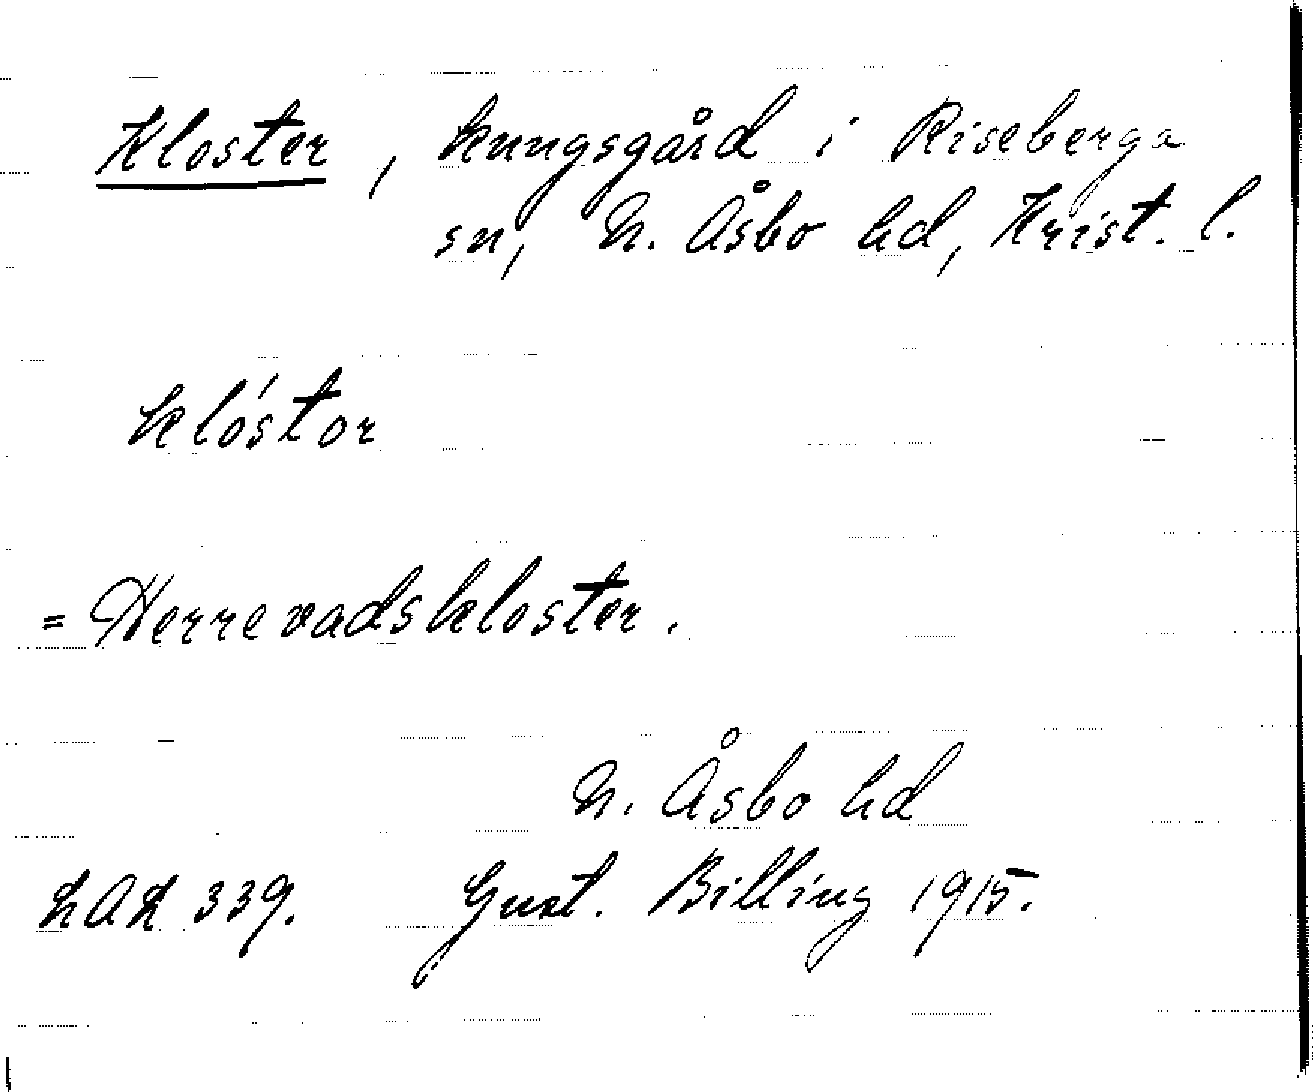 Kloster, kungsgård i Riseberga
sn, N. Åsbo hd, Krist. l.
klóstor
= Herrevadskloster.
N. Åsbo hd
LAL 339. Gust. Billing 1915.